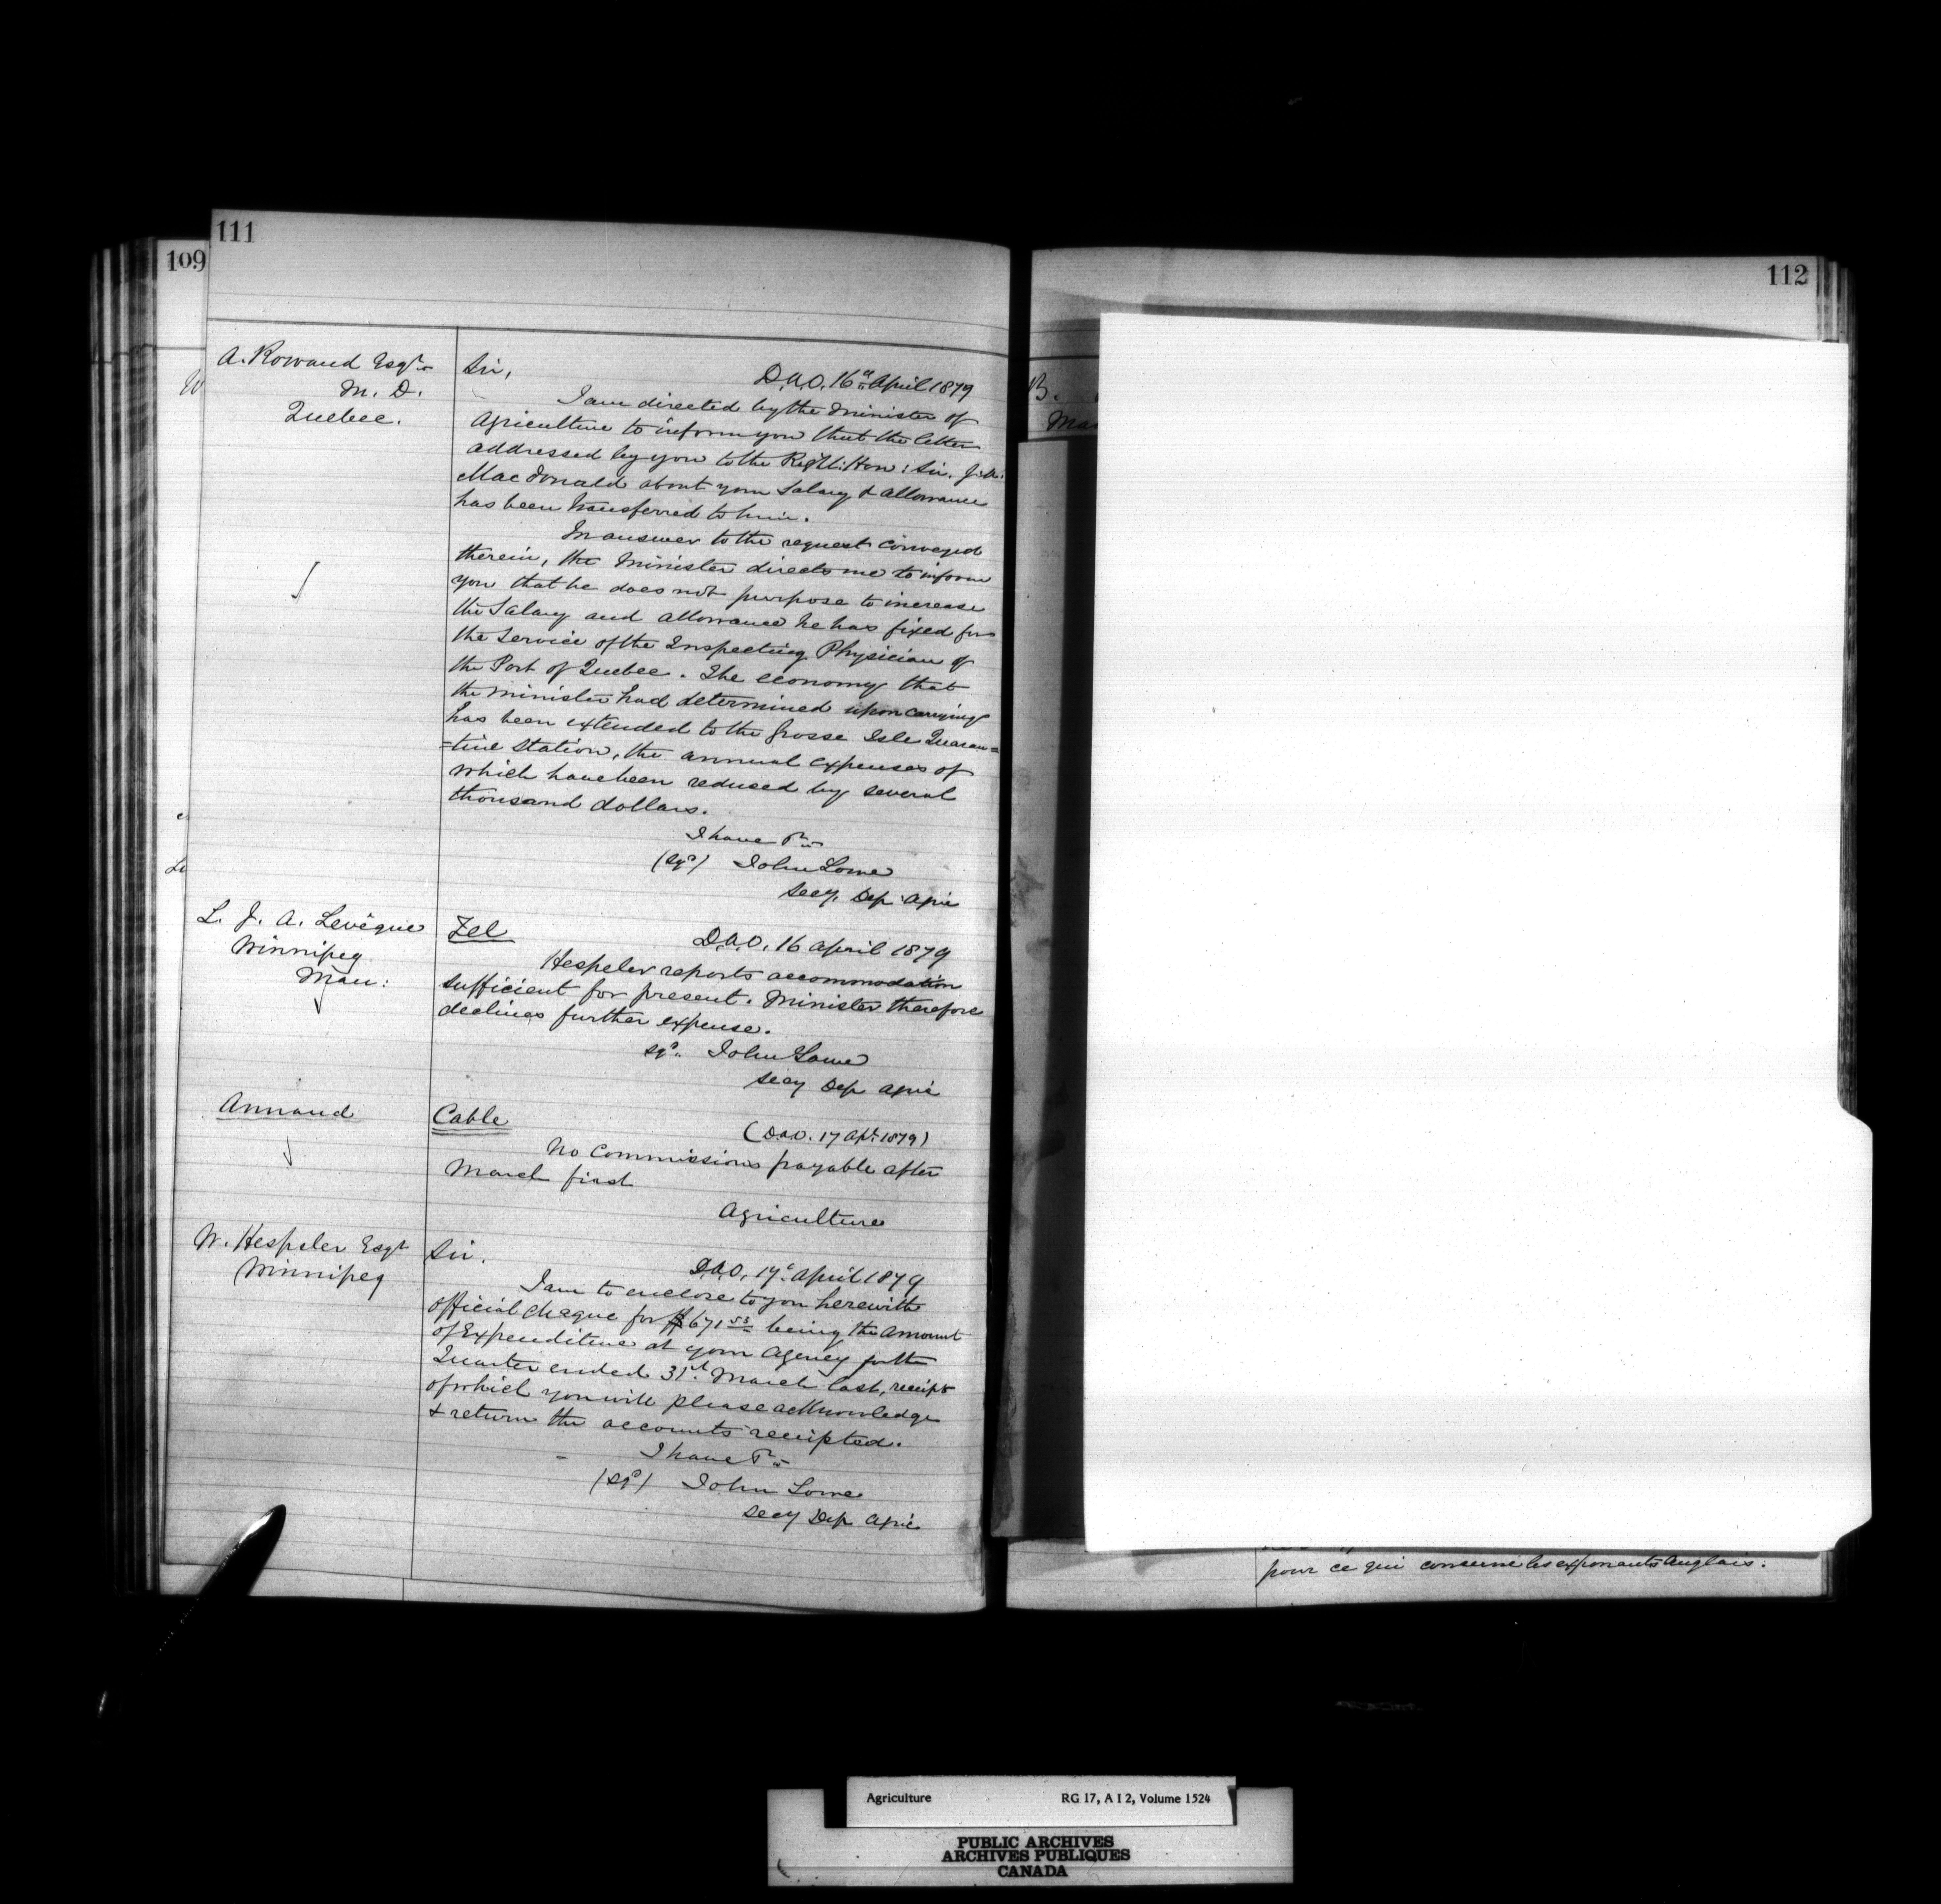 111
109
A. Rowand Esqr
M. D.
Quebec.
Sir,
D.A.O. 16th April 1879
I am directed by the Minister of
Agriculture to inform you that the letter
addressed by you to the Right: Hon: Sir. J. A.
MacDonald about your Salary & allowance
has been transferred to him.
In answer to the request conveyed
therein, the Minister directs me to inform
you that he does not purpose to increase
the Salary and allowance he has fixed for
the Service of the Inspecting Physician of
the Port of Quebec. The economy that
the minister had determined upon carrying
has been extended to the Grosse Isle Quaran=
=tine Station, the annual expenses of
which have been reduced by several
thousand dollars.
I have &c
(sgd) John Lowe
Secy. Dep. Agric
L. J. A. Levêque
Winnipeg
Man:
Tel
D.A.O. 16 April 1879
Hespeler reports accommodation
sufficient for present. Minister therefore
declines further expense.
sgd. John Lowe
Secy Dep Agric
Annand
Cable
(D.A.O. 17 Apl. 1879)
No Commissions payable after
March first
Agriculture
W. Hespeler Esqr
Winnipeg
Sir.
D.A.O. 17th April 1879
I am to enclose to you herewith
official cheque for $671 53 being the amount
of Expenditure at your Agency for the
Quarter ended 31st March last, receipt
of which you will please acknowledge
& return the accounts receipted.
I have &c
(sgd) John Lowe
Secy Dep Agric
112
B.
pour ce qui concerne les exposants Anglais.
Agriculture RG 17, A I 2, Volume 1524
PUBLIC ARCHIVES
ARCHIVES PUBLIQUES
CANADA